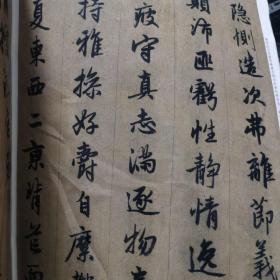 隐恻造次弗離節義
顛沛匪虧性靜情逸
疲守真志滿逐物意
持雅操好爵自縻都
夏東西二京背芒面